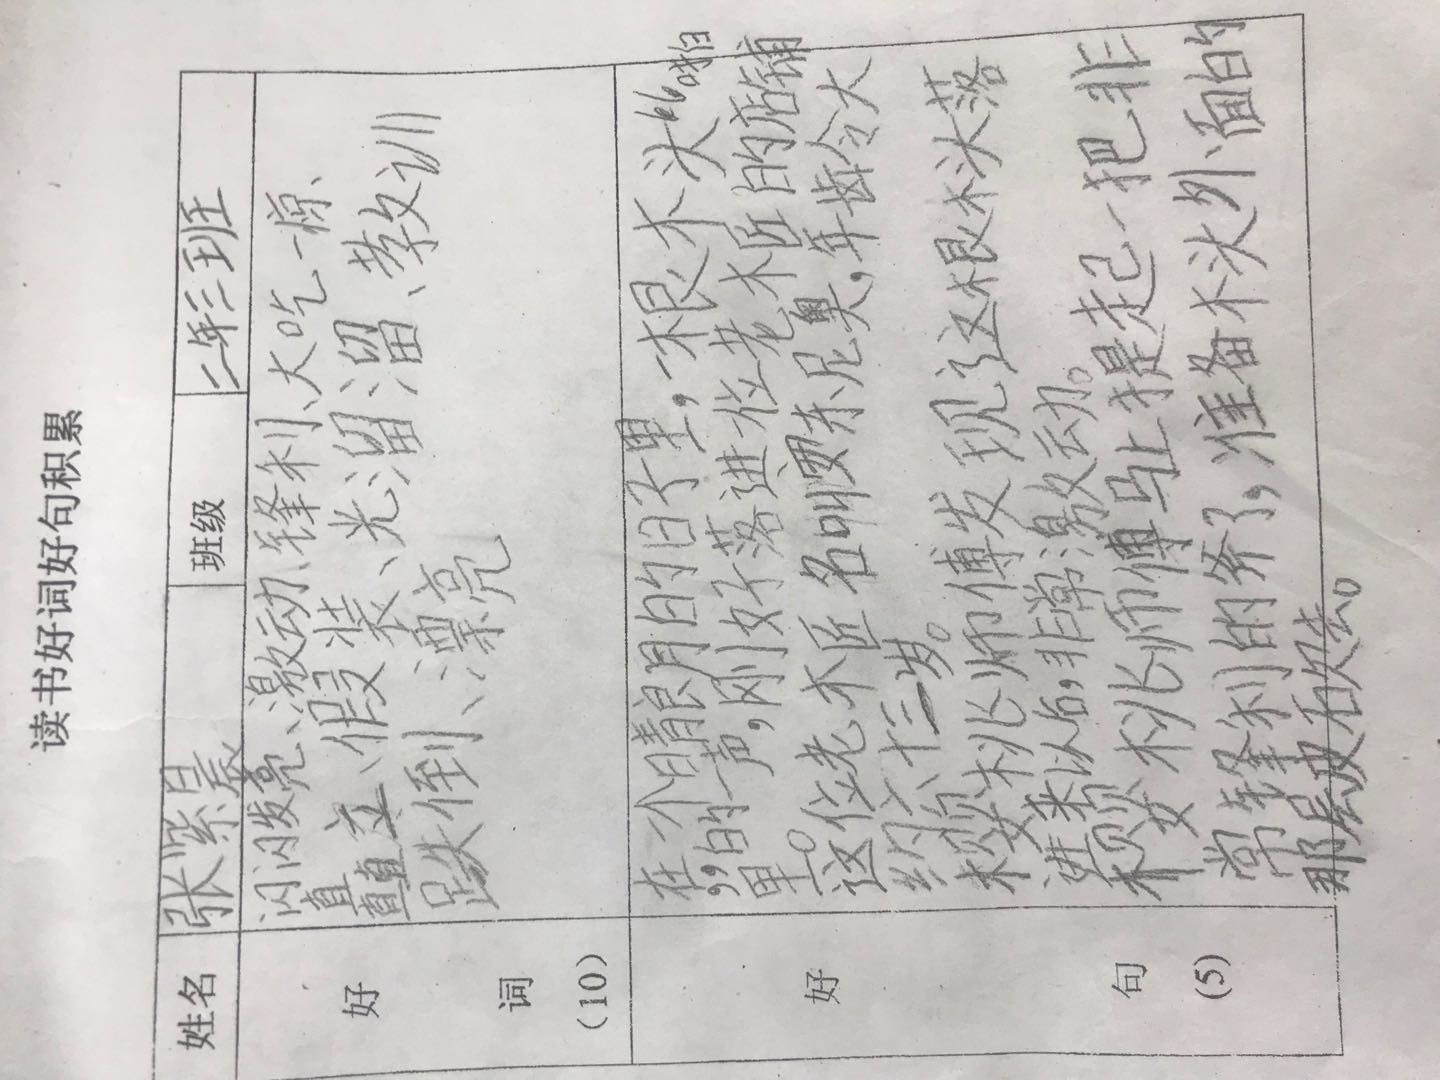 读书好词好句积累
姓名 张紫晨 班级 二年三班
好词(10)
闪闪发亮、激动、锋利、大吃一惊、
直直立、假装、光溜溜、教训
跌倒、漂亮
好句(5)
在一个晴朗的日子里,一根木头“啪
”的一声,刚好落进一位老木匠的店铺
里。
这位老木匠名叫安东尼奥,年龄大
约六十三岁。
樱桃师傅发现了这根木头落
进来以后,非常激动。
樱桃师傅马上提起一把非
常锋利的斧子,准备木头外面的
那层皮砍去。